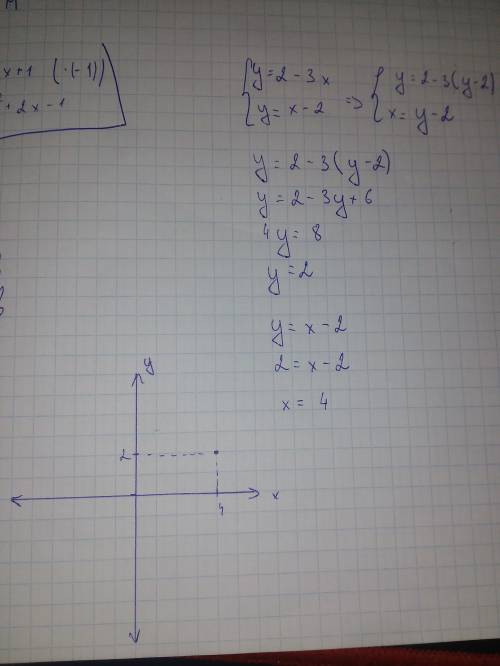 x+1 (·(-1))
+2x-1
{y=2-3x
{y=x-2 => {y=2-3(y-2)
{x=y-2
y=2-3(y-2)
y=2-3y+6
4y=8
y=2
y=x-2
2=x-2
x=4
y
2
4
x